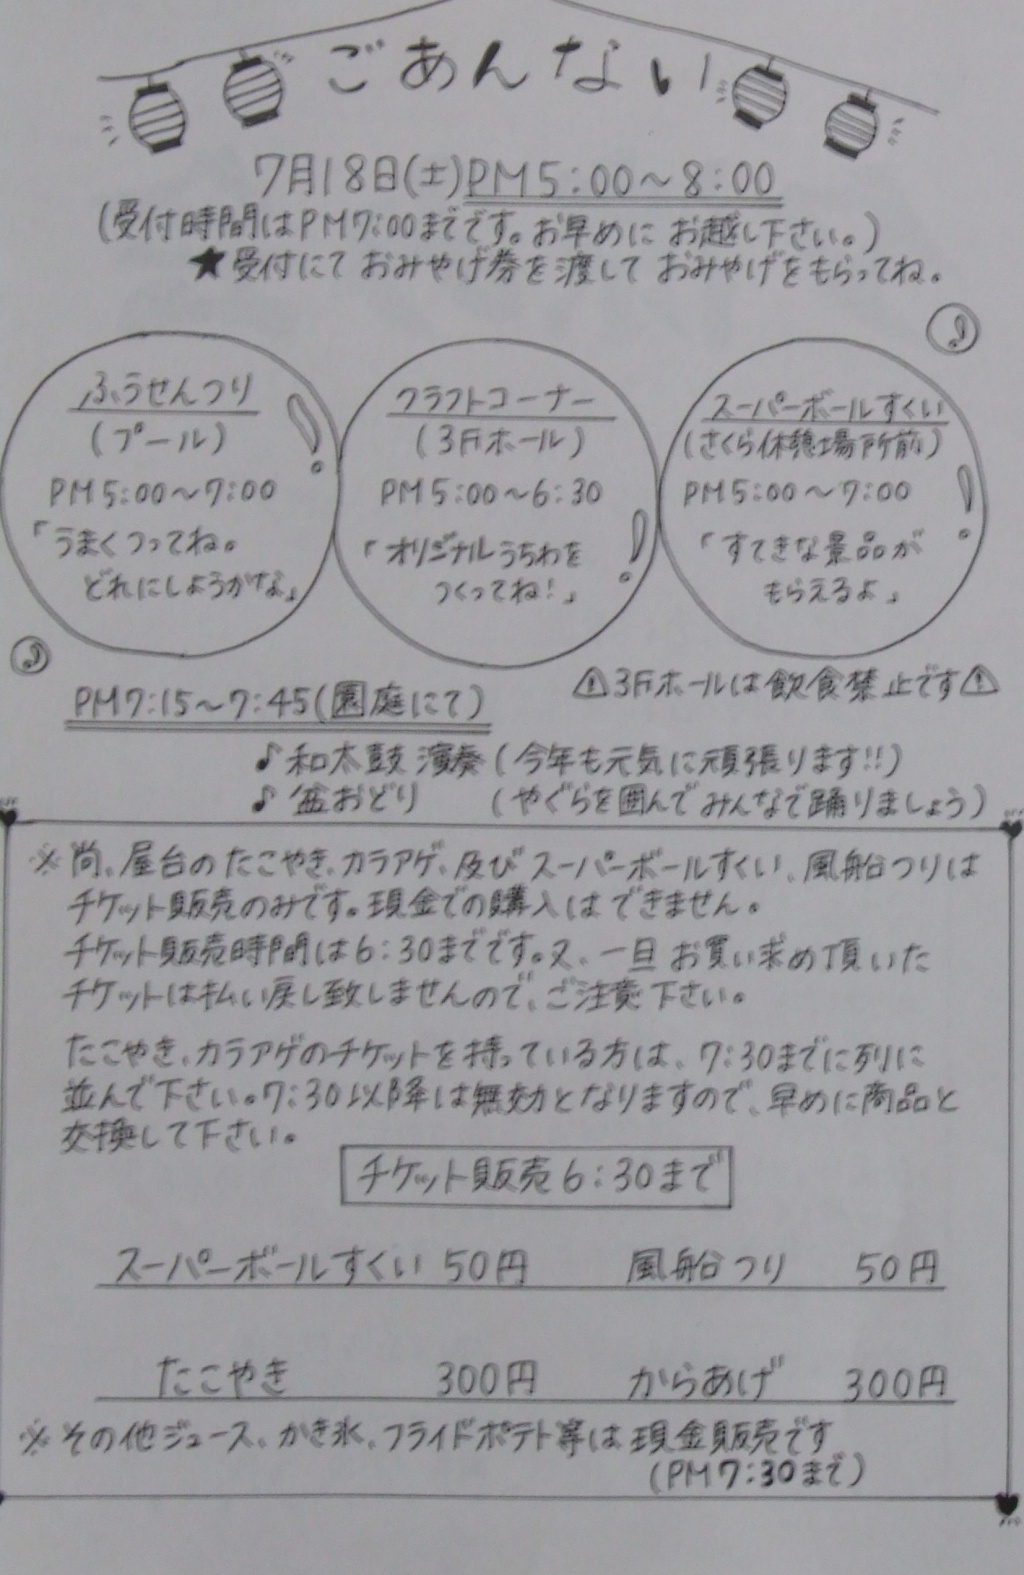 ごあんない
7月18日(土)PM5:00～8:00
(受付時間はPM7:00までです。お早めに お越し下さい。)
★受付にて おみやげ券を渡して おみやげをもらってね。
ふうせんつり
(プール)
PM5:00～7:00
「うまくつってね。
どれにしようかな」
クラフトコーナー
(3Fホール)
PM5:00～6:30
「オリジナルうちわを
つくってね!」
スーパーボールすくい
(さくら休憩場所前)
PM5:00～7:00
「すてきな景品が
もらえるよ」
⚠3Fホールは飲食禁止です⚠
PM7:15～7:45(園庭にて)
♪和太鼓演奏(今年も元気に頑張ります!!)
♪盆おどり (やぐらを囲んでみんなで踊りましょう)
※尚、屋台のたこやき、カラアゲ、及びスーパーボールすくい、風船つりは
チケット販売のみです。現金での購入はできません。
チケット販売時間は6:30までです。又、一旦お買い求め頂いた
チケットは払い戻し致しませんので、ご注意下さい。
たこやき、カラアゲのチケットを持っている方は、7:30までに列に
並んで下さい。7:30以降は無効となりますので、早めに商品と
交換して下さい。
チケット販売6:30まで
スーパーボールすくい 50円 風船つり 50円
たこやき 300円 からあげ 300円
※その他ジュース、かき氷、フライドポテト等は現金販売です
(PM7:30まで)